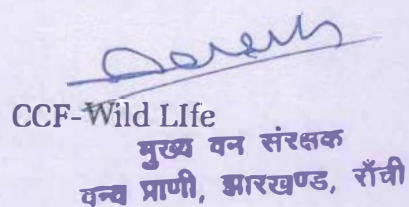 CCF-Wild LIfe
मुख्य वन संरक्षक
वन्य प्राणी, झारखण्ड, राँची